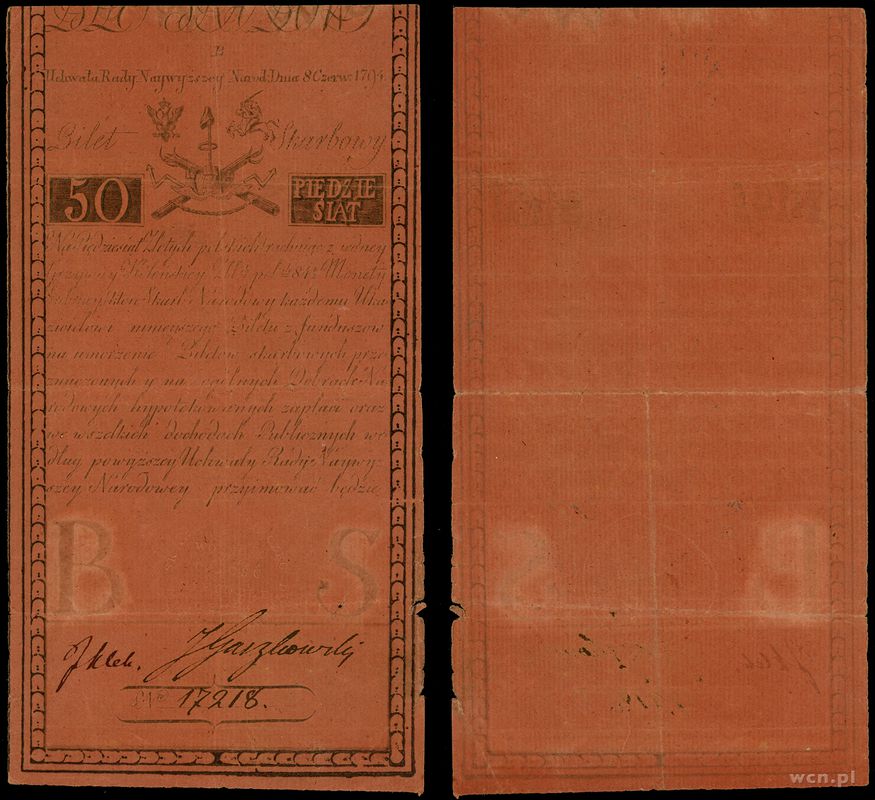 B
Uchwała Rady Naywyższey Narod: Dnia 8 Czerw: 1794.
Bilet Skarbowy
50 PIĘDZIE
SIAT
Na Piędziesiąt Złotych polskich rachuiąc z iedney
Grzywny Kolońskiey Monety
Skarb Narodowy każdemu Uka
zicielowi ninieyszego Biletu z funduszow
na umorzenie Biletow skarbowych prze
znaczonych y na ogólnych Dobrach Na
rodowych hypotekowanych zapłaci oraz
we wszelkich dochodach Publicznych we
dług powyższey Uchwały Rady Naywyż
szey Narodowey przyjmować będzie
B S
J Klek. J Gaszkowski
17218.
wcn.pl